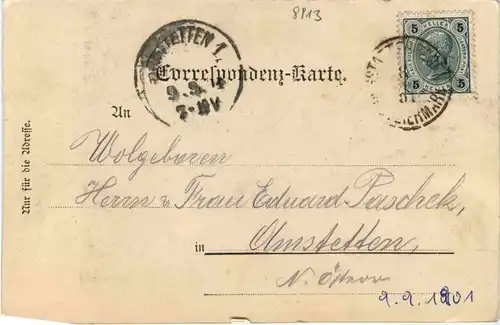 8813
AMSTETTEN 1
9. 9.
7-N V
Correspondenz-Karte.
5 HELLER 5
5 5
An
Nur für die Adresse.
Wolgeboren
Herrn u Frau Eduard Paschek,
in Amstetten,
N. Österr
9.9.1901